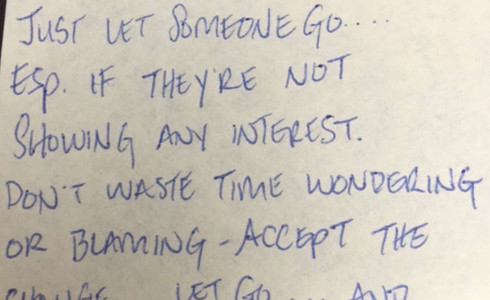 JUST LET SOMEONE GO....
ESP. IF THEY'RE NOT
SHOWING ANY INTEREST.
DON'T WASTE TIME WONDERING
OR BLAMING - ACCEPT THE
CHANGE... LET GO.... AND